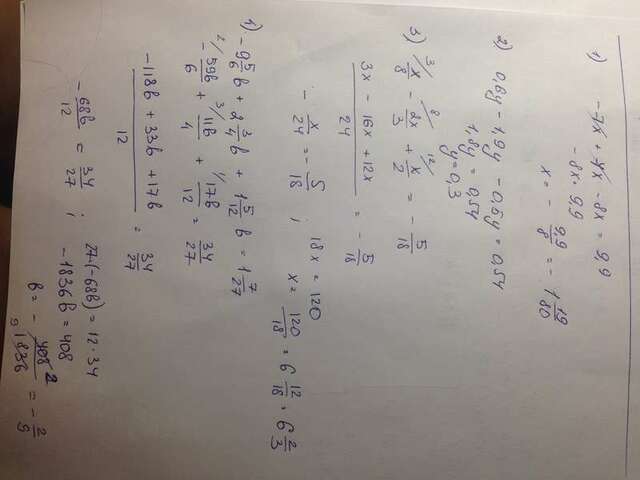 1) -7x + 7x - 8x = 9,9
-8x = 9,9
x = - 9,9/8 = - 1 19/80
2) 0,6y - 1,9y - 0,5y = 0,54
1,8y = 0,54
y = 0,3
3) 3/ x/8 - 8/ 2x/3 + 12/ x/2 = - 5/18
3x - 16x + 12x / 24 = - 5/18
- x/24 = - 5/18 ; 18x = 120
x = 120/18 = 6 12/18 = 6 2/3
1) -9 5/6 b + 2 3/4 b + 1 5/12 b = 1 7/27
2/ - 59b/6 + 3/ 11b/4 + 1/ 17b/12 = 34/27
-118b + 33b + 17b / 12 = 34/27
- 68b/12 = 34/27 ; 27·(-68b) = 12·34
-1836b = 408
b = - 408 2 / 9 1836 = - 2/9